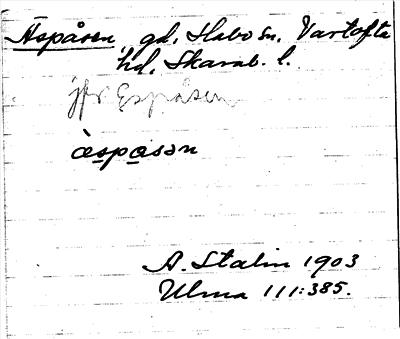 Äspåsen, gd, Habo sn. Vartofta
hd, Skarab. l.
jfr Espåsen
àspasən
A. Stalin 1903
Ulma 111:385.